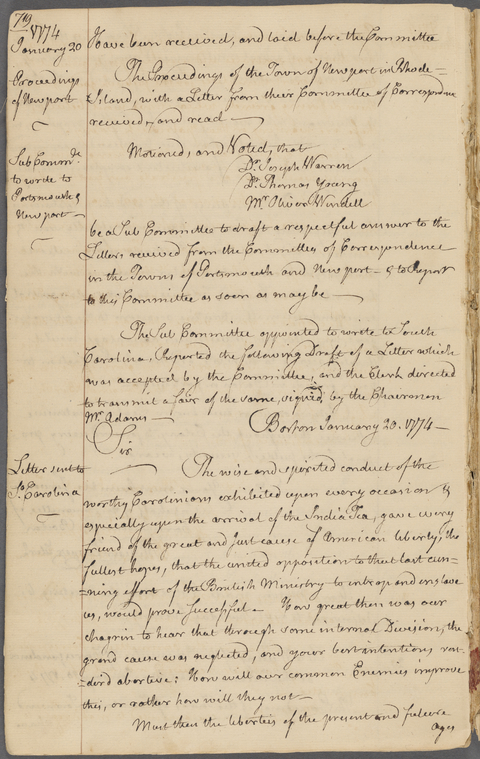 719
1774
January 20
Have been received, and laid before the Committee
Proceedings
of Newport
The Proceedings of the Town of Newport in Rhode-
-Island, with a Letter from their Committee of Correspondence
received, and read —
Motioned, and Voted, that
Dr. Joseph Warren
Dr. Thomas Young
Mr. Oliver Wendell
Sub Committe
to write to
Portsmouth &
Newport —
be a Sub Committee to draft a respectful answer to the
Letters received from the Committees of Correspondence
in the Towns of Portsmouth and Newport — & to Report
to this Committee as soon as may be —
The Sub Committee appointed to write to South
Carolina, Reported the following Draft of a Letter which
was accepted by the Committee, and the Clerk directed
to transmit a fair of the same, signed, by the Chairman
Mr. Adams —
Boston January 20. 1774 —
Sir
Letter sent to
So. Carolina
The wise and spirited conduct of the
worthy Carolinians exhibited upon every occasion &
especially upon the arrival of the India Tea, gave every
friend of the great and just cause of American liberty, the
fullest hopes, that the united opposition to that last cun-
-ning effort of the British Ministry to entrap and enslave
us, would prove Successful. How great then was our
chagrin to hear that through some internal Division, the
grand cause was neglected, and your best intentions ren-
derd abortive: How will our common Enemies improve
this, or rather how will they not —
Must then the liberties of the present and future
ages